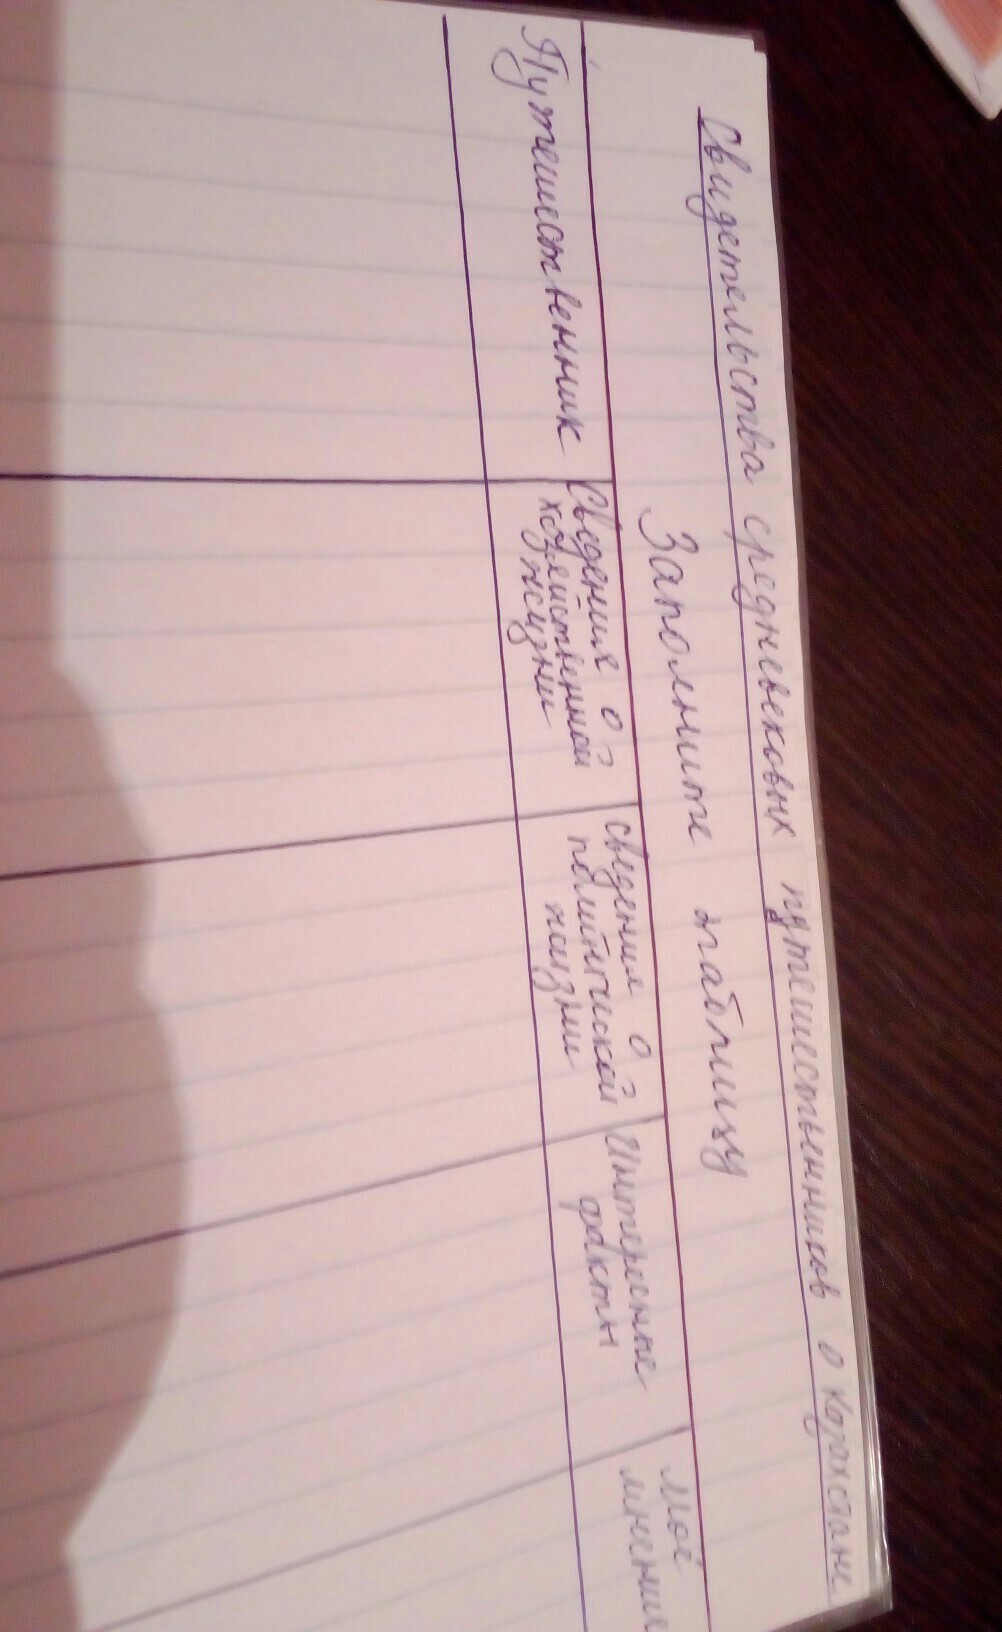 Свидетельства средневековых путешественников о Казахстане
Заполните таблицу
Путешественник
Сведения о
хозяйственной
жизни
Сведения о
политической
жизни
Интересные
факты
Моё
мнение